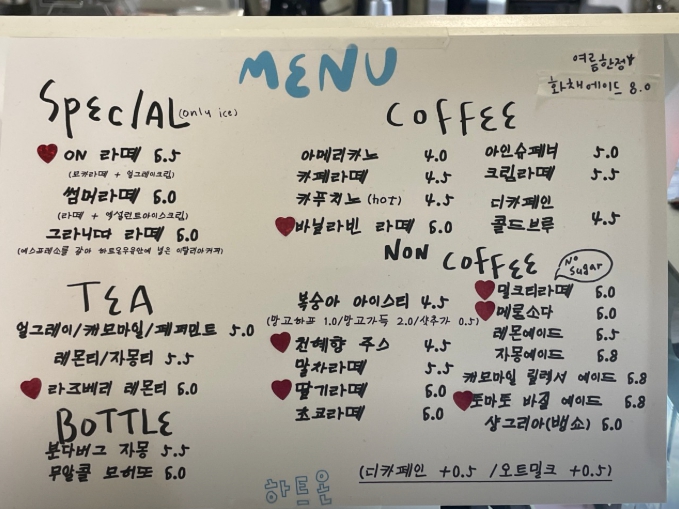 MENU
여름한정
화채에이드 8.0
SPECIAL (only ice)
ON 라떼 5.5
(모카라떼 + 얼그레이크림)
썸머라떼 6.0
(라떼 + 엑설런트아이스크림)
그라니따 라떼 6.0
(에스프레소를 갈아 하트온우유안에 넣은 이탈리아커피)
TEA
얼그레이/캐모마일/페퍼민트 5.0
레몬티/자몽티 5.5
라즈베리 레몬티 6.0
BOTTLE
분다버그 자몽 5.5
무알콜 모히또 6.0
COFFEE
아메리카노 4.0
카페라떼 4.5
카푸치노 (hot) 4.5
바닐라빈 라떼 6.0
아인슈페너 5.0
크림라떼 5.5
디카페인
콜드브루 4.5
NON COFFEE
No Sugar
복숭아 아이스티 4.5
(망고하프 1.0/망고가득 2.0/샷추가 0.5)
천혜향 주스 4.5
말차라떼 5.5
딸기라떼 6.0
초코라떼 6.0
밀크티라떼 6.0
메론소다 6.0
레몬에이드 5.5
자몽에이드 5.8
캐모마일 릴렉서 에이드 5.8
토마토 바질 에이드 5.8
샹그리아(뱅쇼) 6.0
(디카페인 +0.5 /오트밀크 +0.5)
하트온